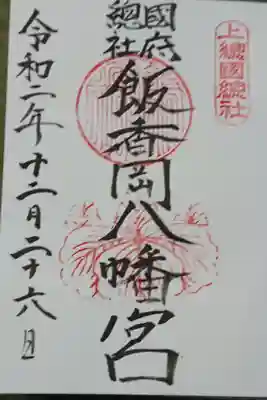 上總國總社
國府
總社
飯香岡八幡宮
令和二年十二月二十六日